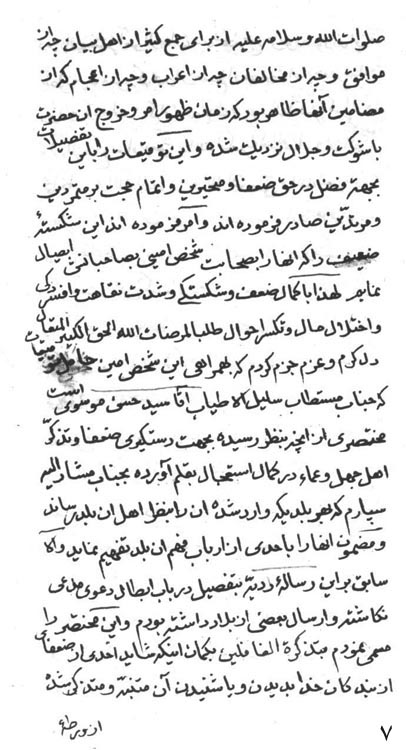 صلوات الله و سلامه علیه از برای جمع کثیر از اهل بیان چه از
موافق و چه از مخالفان چه از اعراب و چه از اعجام که از
مضامین آنها ظاهر بود که زمان ظهور امر و خروج ان حضرت
با شوکت و جلال نزدیک شده و این توقیعات را باین تفصیلات
بجهة فضل در حق ضعفا و محتجبین و اتمام حجت بر متمردین
و مرتدین صادر فرموده اند و امر فرموده اند این شکستهٔ
ضعیف را که انها را بصحابت شخص امینی بصاحبانش ایصال
نمایم لهذا با کمال ضعف و شکستگی و شدت نقاهت و افسردگی
و اختلال حال و تکسر احوال طلبا لمرضات الله الحق الکبیر المتعال
دل کرم و عزم جزم کردم که بهمراهی این شخص امین حامل توقیعات
که جناب مستطاب سلیل الاطیاب اقا سید حسن موسوی است
مختصری از انچه بنظر رسیده بجهت دستکیری ضعفا و تذکر
اهل جهل و عماء در کمال استعجال بقلم آورده بجناب مشار الیه
سپارم که بهر بلدیکه وارد شده ان را بنظر اهل ان بلد رساند
و مضمون انها را باحدی از ارباب فهم ان بلد تفهیم نماید والا
سابق بر این رسالهٔ ردیه بتفصیل در باب ابطال دعوی مدعی
نکاشته و ارسال ببعضی از بلاد داشته بودم و این مختصر را
مسمی نمودم بتذکرة الغافلین بکمان اینکه شاید احدی از ضعفای
از بندکان خدا بدیدن و یا شنیدن آن متنبه و متذکر شده
از ور
۷